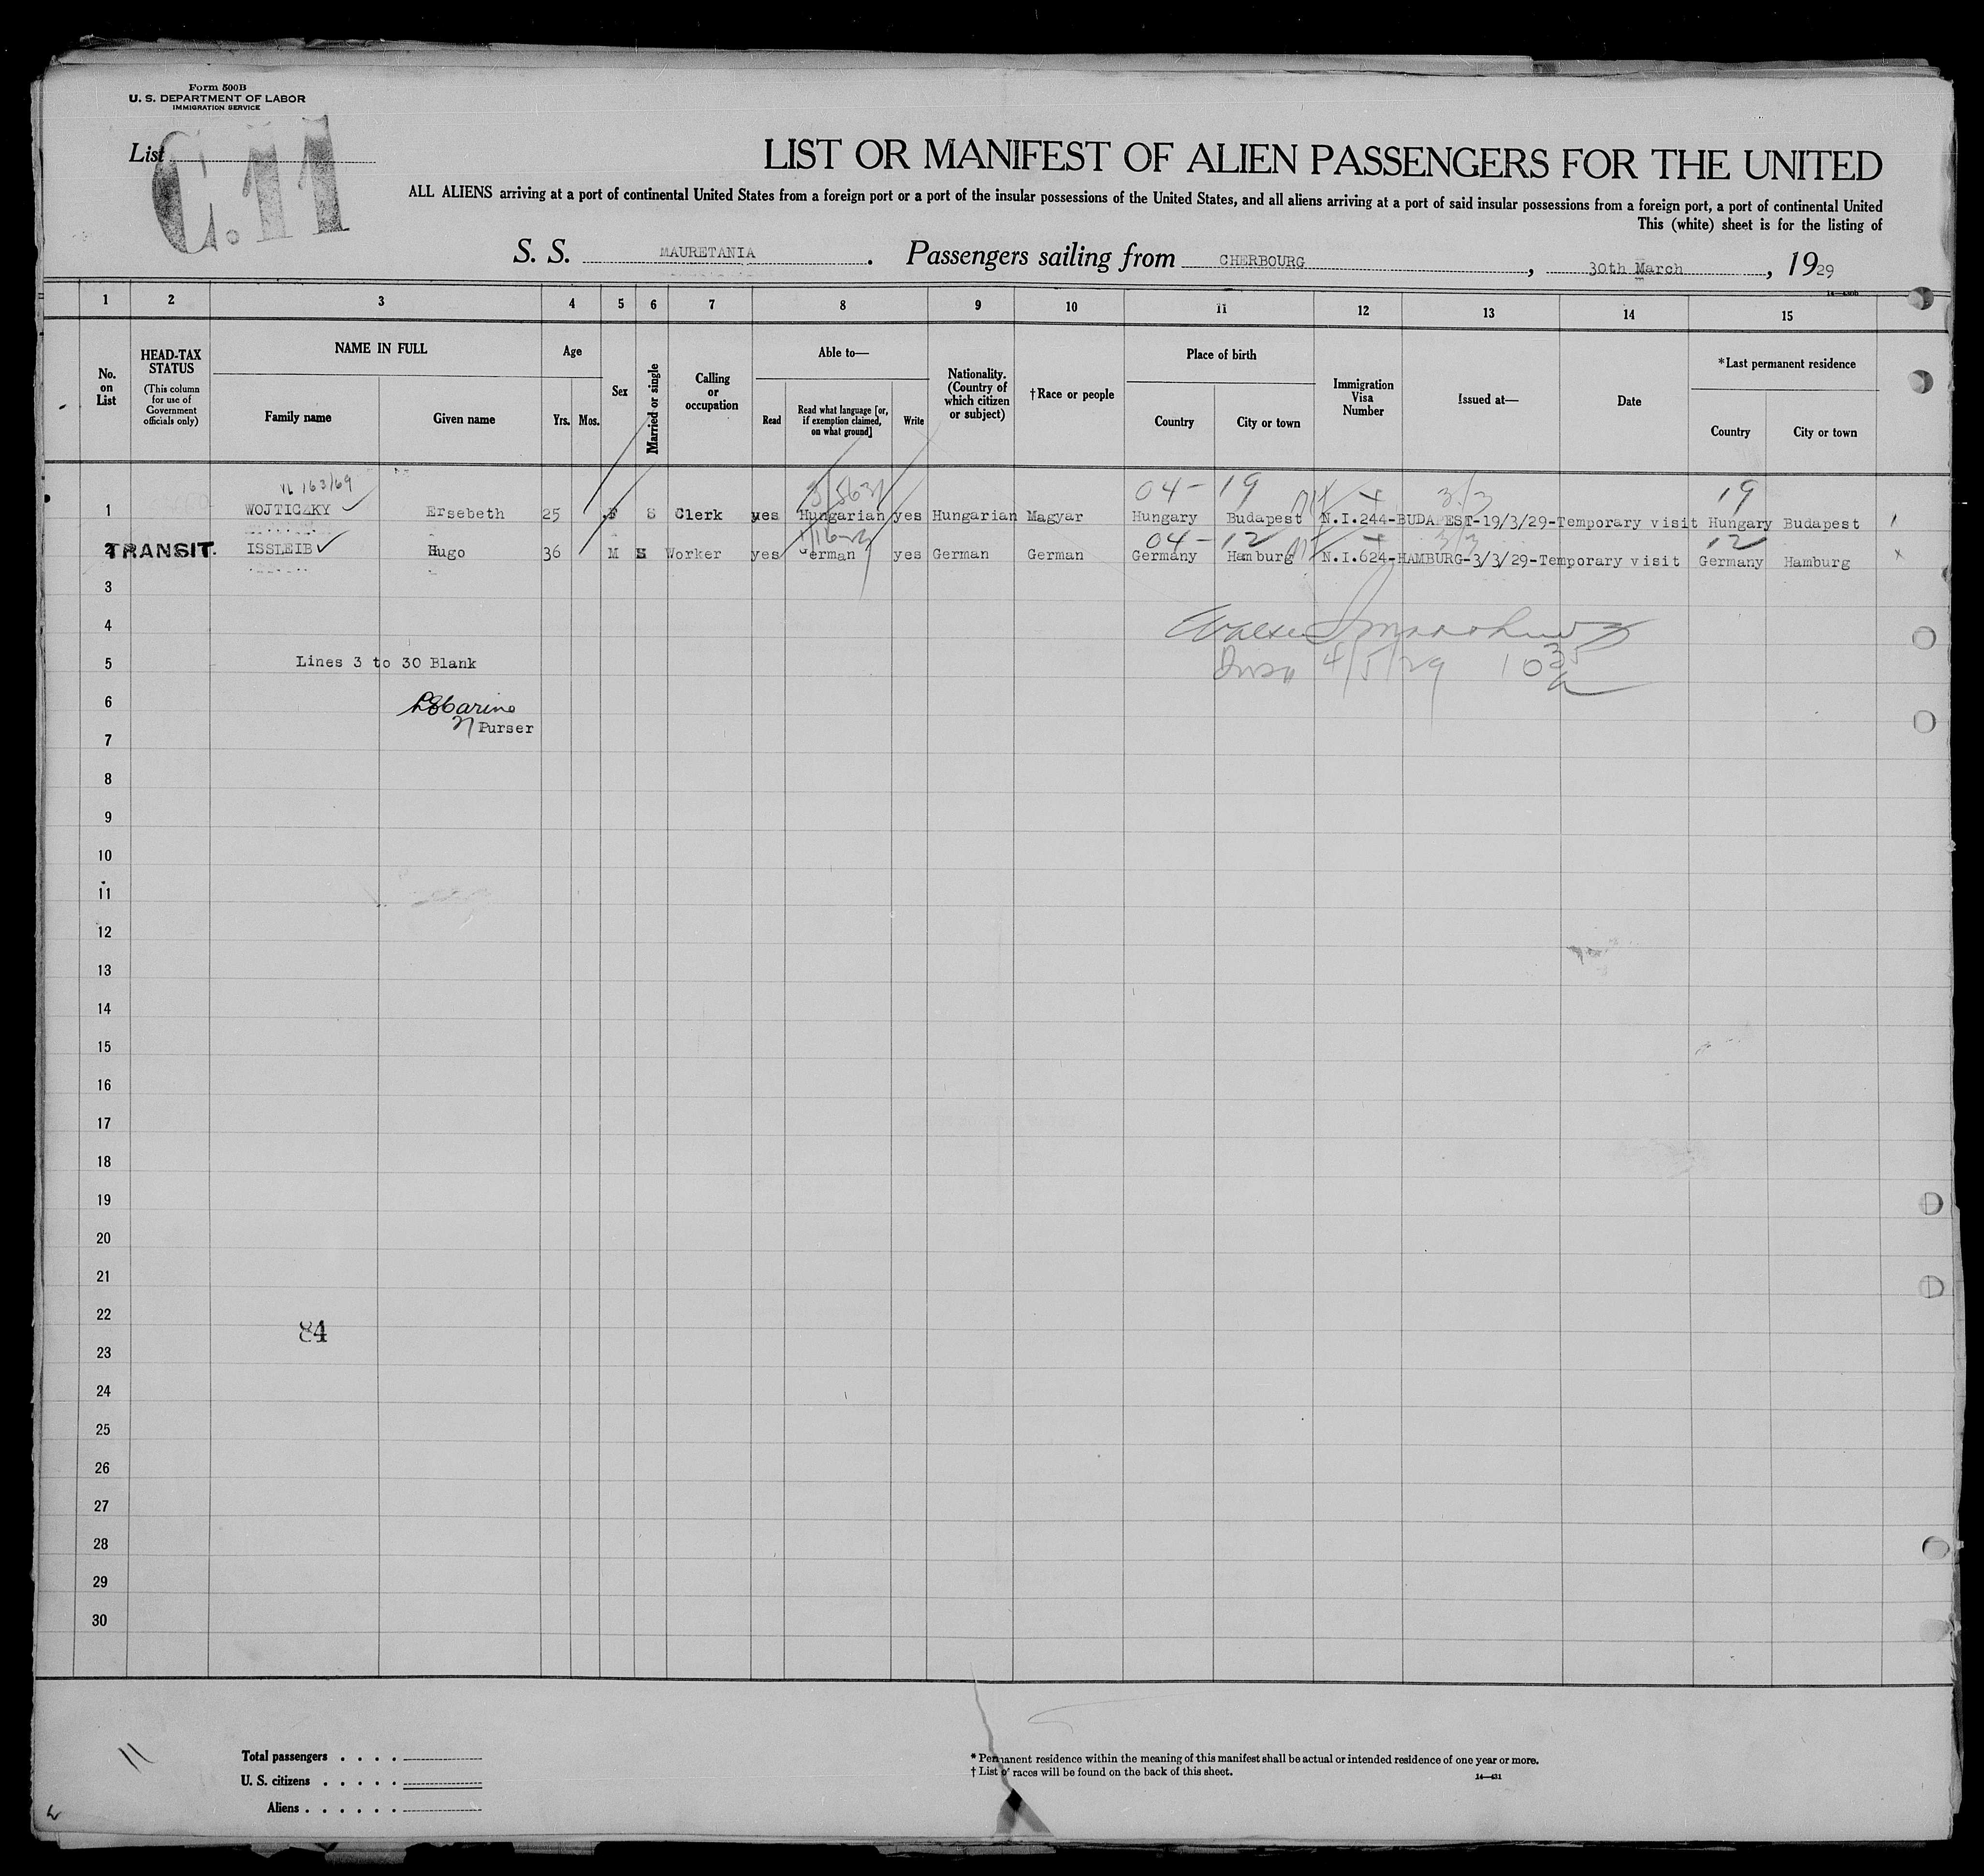 Form 500B
U. S. DEPARTMENT OF LABOR
IMMIGRATION SERVICE
List
C.11
LIST OR MANIFEST OF ALIEN PASSENGERS FOR THE UNITED
ALL ALIENS arriving at a port of continental United States from a foreign port or a port of the insular possessions of the United States, and all aliens arriving at a port of said insular possessions from a foreign port, a port of continental United
This (white) sheet is for the listing of
S. S. MAURETANIA. Passengers sailing from CHERBOURG, 30th March, 1929
1 2 3 4 5 6 7 8 9 10 11 12 13 14 15
No. on List
HEAD-TAX STATUS (This column for use of Government officials only)
NAME IN FULL
Family name Given name
Age
Yrs. Mos.
Sex
Married or single
Calling or occupation
Able to—
Read Read what language [or, if exemption claimed, on what ground] Write
Nationality. (Country of which citizen or subject)
†Race or people
Place of birth
Country City or town
Immigration Visa Number
Issued at—
Date
*Last permanent residence
Country City or town
04-19 3/3 19
1 WOJTICZKY Ersebeth 25 F S Clerk yes Hungarian yes Hungarian Magyar Hungary Budapest N.I.244-BUDAPEST-19/3/29-Temporary visit Hungary Budapest
04-12 3/3 12
2 TRANSIT. ISSLEIB Hugo 36 M S Worker yes German yes German German Germany Hamburg N.I.624-HAMBURG-3/3/29-Temporary visit Germany Hamburg
3
4
5 Lines 3 to 30 Blank 4/5/29
6
Purser
7
8
9
10
11
12
13
14
15
16
17
18
19
20
21
22
84
23
24
25
26
27
28
29
30
11
Total passengers . . . .
U. S. citizens . . . . .
Aliens . . . . . .
* Permanent residence within the meaning of this manifest shall be actual or intended residence of one year or more.
† List of races will be found on the back of this sheet.
14—431